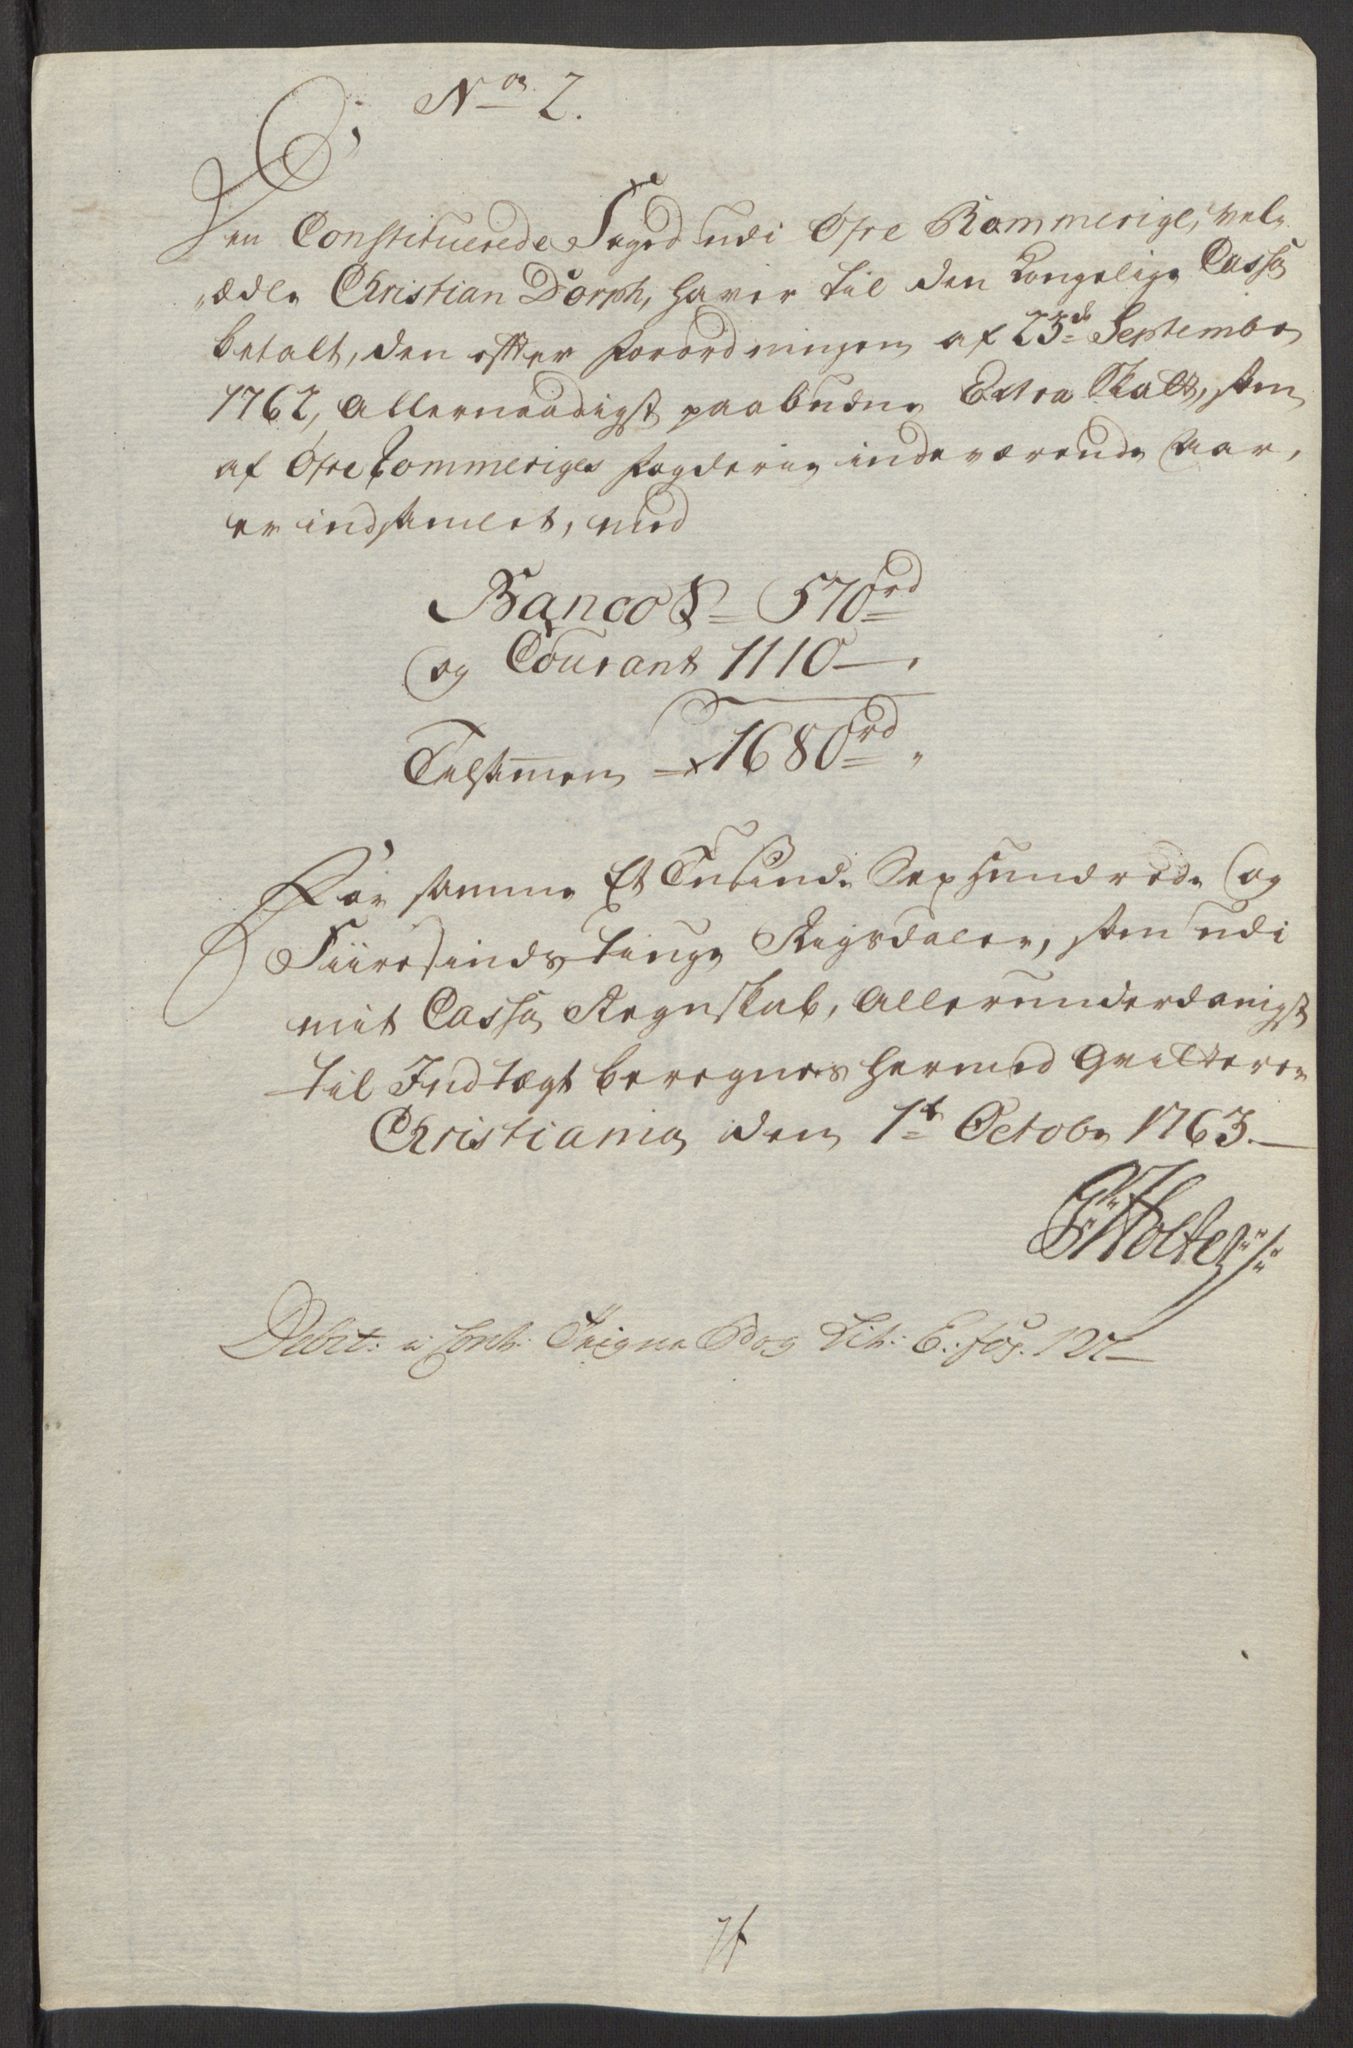 No 2.
Den Constituerede Foged udi Øfre Rommerige, vel-
ædle Christian Dorph, haver til den Kongelige Cassa
betalt, den efter Forordningen af 23de Septembr
1762, Allernaadigst paabudne Extra Skatt, som
af Øfre Rommeriges Fogderie indeværende Aar,
er indsamlet, med
Banco S 570rd
og Courant 1110 —
Tilsammen — 1680rd
For samme Et Tusinde Sex Hundrede og
Fiiresindstiuge Rigsdaler, som udi
mit Cassa Regnskab, Allerunderdanigst
til Indtægt beregnes hermed Qvitterer
Christiania den 1t Octobr 1763. —
Holter
Debit: u Cont: Bog Lit: E. fol. 127 —